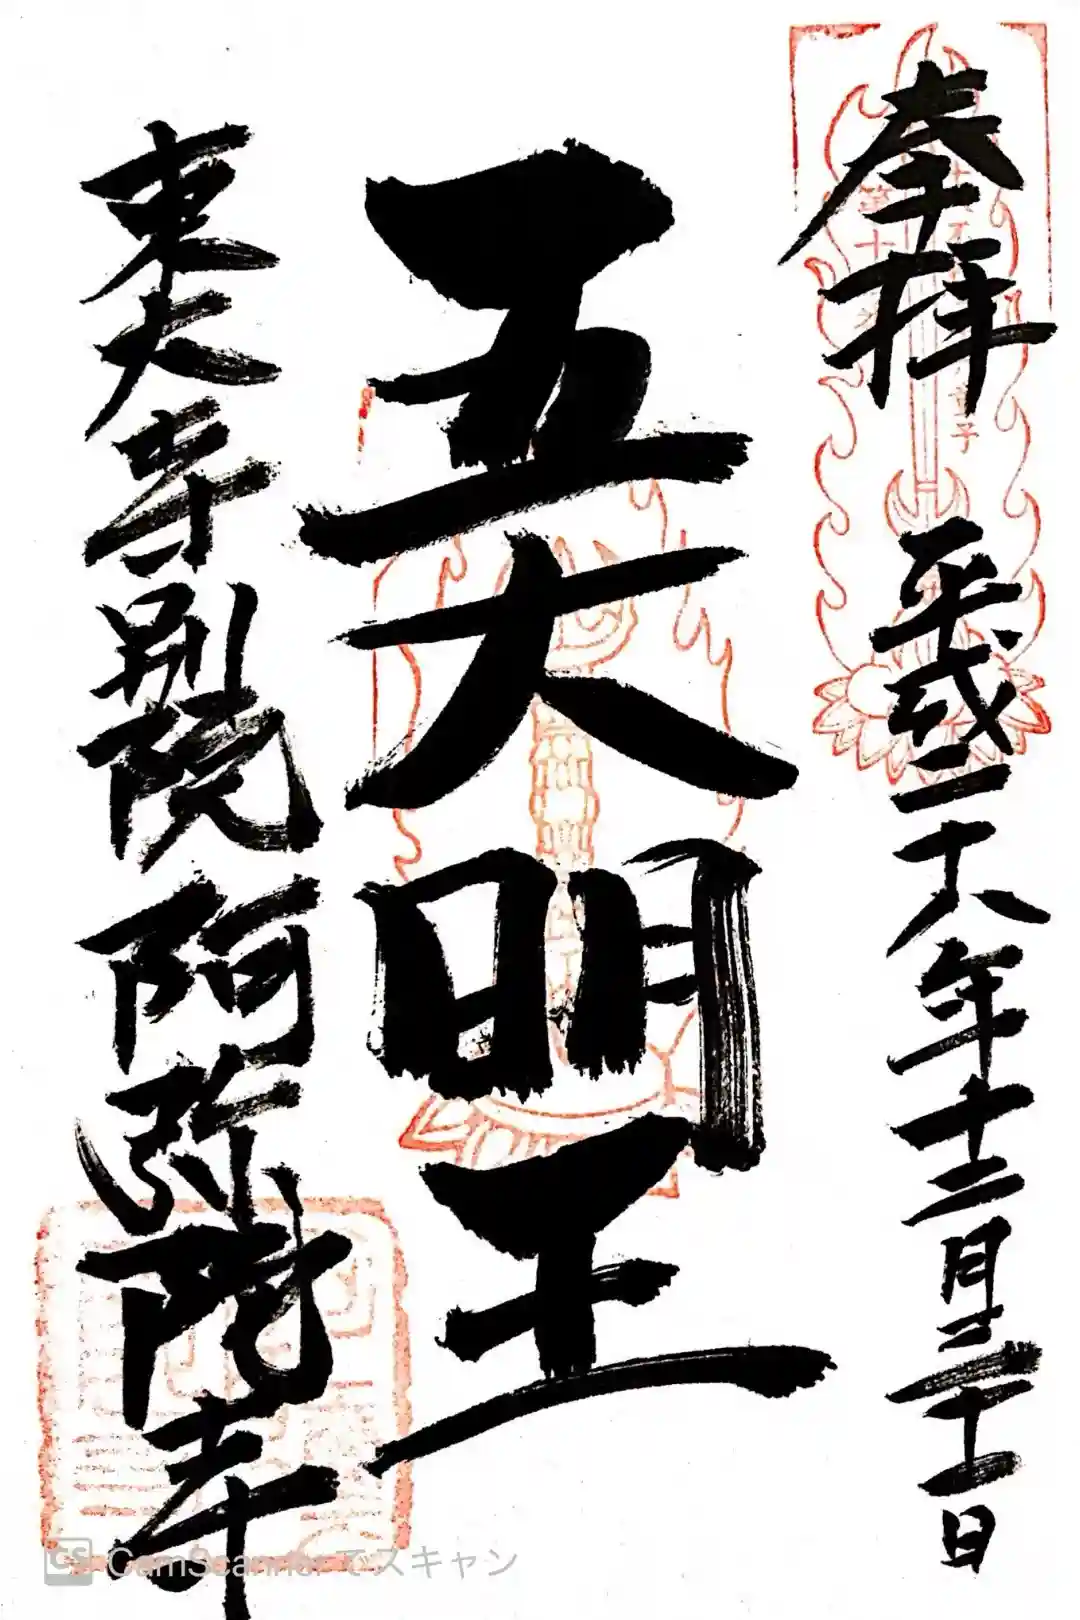 奉拝 平成二十八年十二月三十一日
五大明王
東大寺別院 阿弥陀寺
童子
CS CamScannerでスキャン